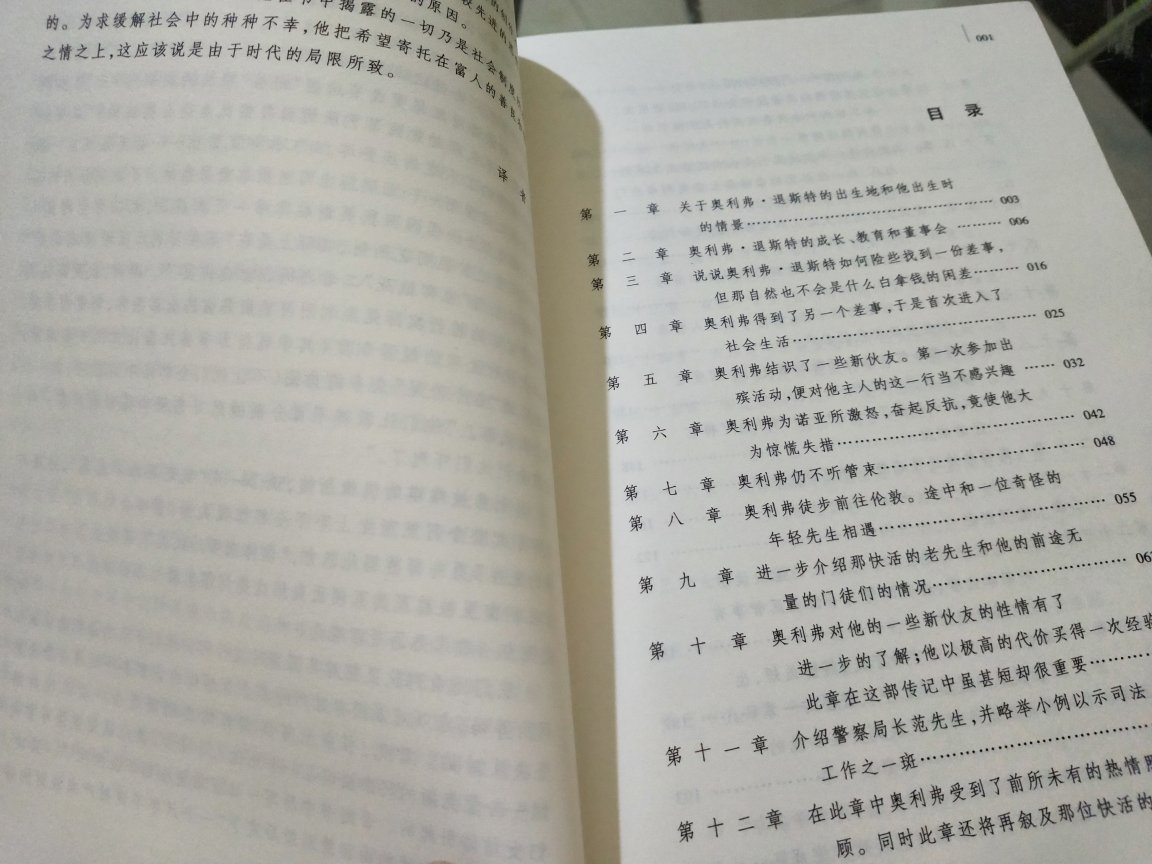 的原因。
书中揭露的一切乃是社会制度
的。为求缓解社会中的种种不幸，他把希望寄托在富人的善良
之情之上，这应该说是由于时代的局限所致。
译 者
001
目 录
第 一 章 关于奥利弗·退斯特的出生地和他出生时
的情景……………………………… 003
第 二 章 奥利弗·退斯特的成长、教育和董事会 ……… 006
第 三 章 说说奥利弗·退斯特如何险些找到一份差事，
但那自然也不会是什么白拿钱的闲差……… 016
第 四 章 奥利弗得到了另一个差事，于是首次进入了
社会生活……………………………… 025
第 五 章 奥利弗结识了一些新伙友。第一次参加出
殡活动，便对他主人的这一行当不感兴趣 …… 032
第 六 章 奥利弗为诺亚所激怒，奋起反抗，竟使他大
为惊慌失措……………………………… 042
第 七 章 奥利弗仍不听管束……………………………… 048
第 八 章 奥利弗徒步前往伦敦。途中和一位奇怪的
年轻先生相遇……………………………… 055
第 九 章 进一步介绍那快活的老先生和他的前途无
量的门徒们的情况………………………… 06
第 十 章 奥利弗对他的一些新伙友的性情有了
进一步的了解；他以极高的代价买得一次经验
此章在这部传记中虽甚短却很重要………
第 十 一 章 介绍警察局长范先生，并略举小例以示司法
工作之一斑………………………………
第 十 二 章 在此章中奥利弗受到了前所未有的热情照
顾。同时此章还将再叙及那位快活的